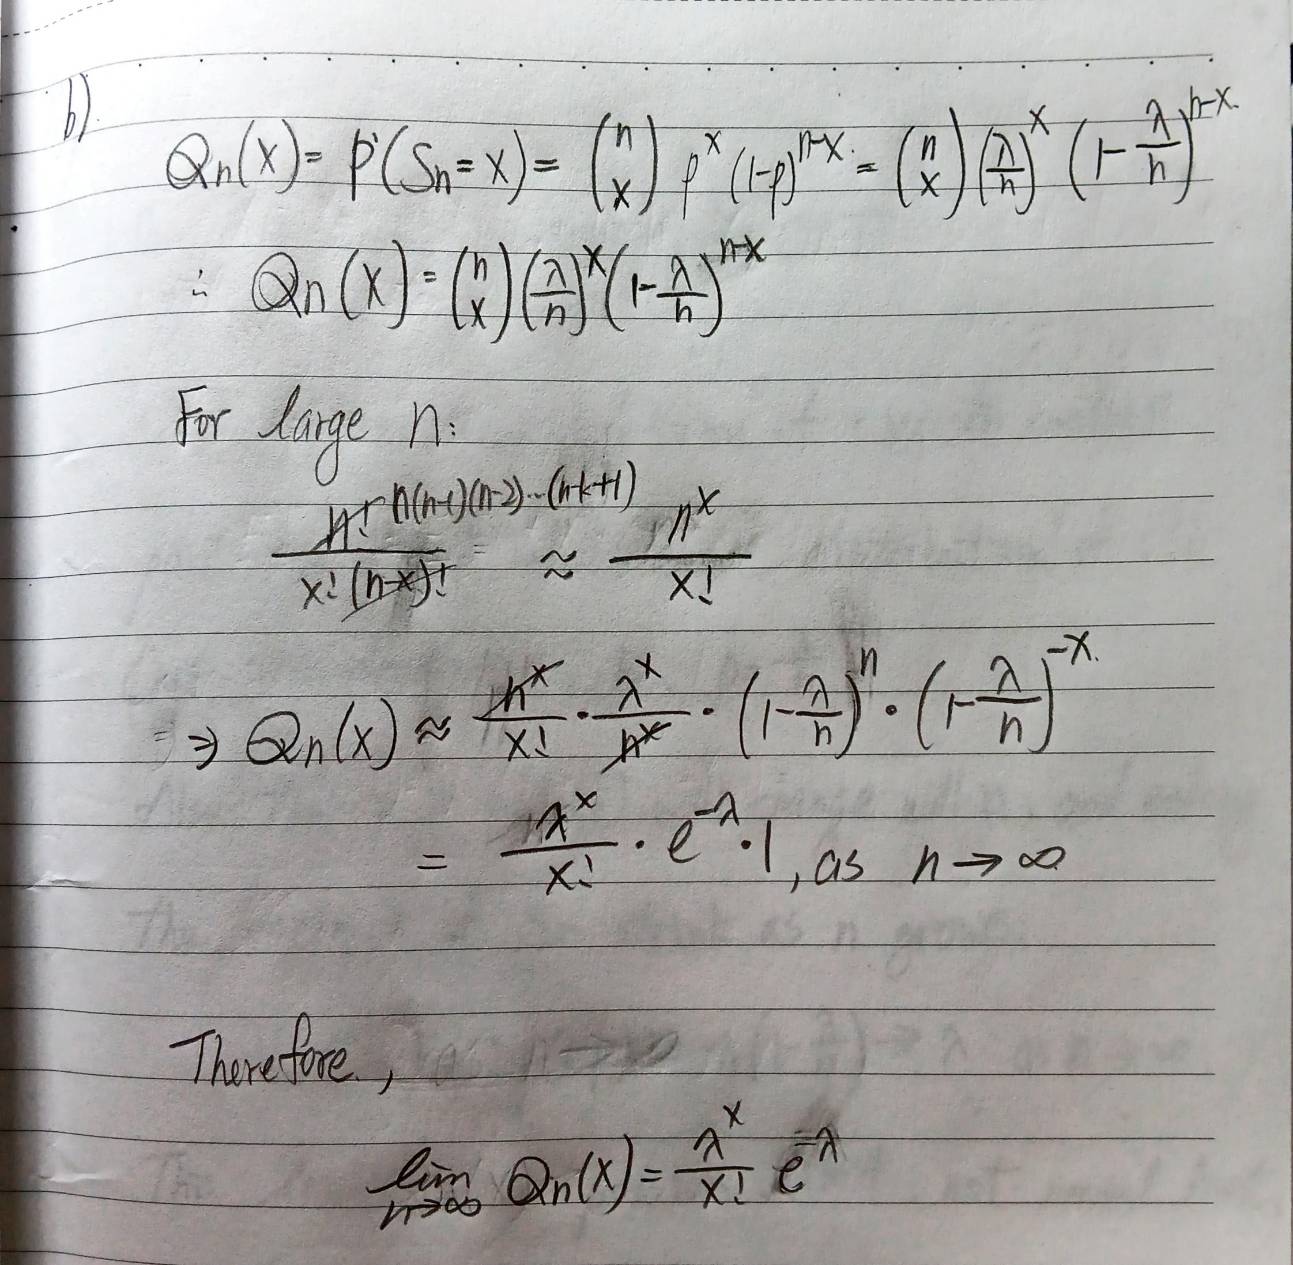 b)
Qn(x) = P(Sn = x) = (n x) p^x (1-p)^n-x = (n x) (λ/n)^x (1 - λ/n)^n-x.
∴ Qn(x) = (n x) (λ/n)^x (1 - λ/n)^n-x
For large n:
n! n(n-1)(n-2)...(n-k+1) / x! (n-x)! ≈ n^x / x!
⇒ Qn(x) ≈ n^x/x! · λ^x/n^x · (1 - λ/n)^n · (1 - λ/n)^-x.
= λ^x/x! · e^-λ · 1, as n → ∞
Therefore,
lim n→∞ Qn(x) = λ^x/x! e^-λ